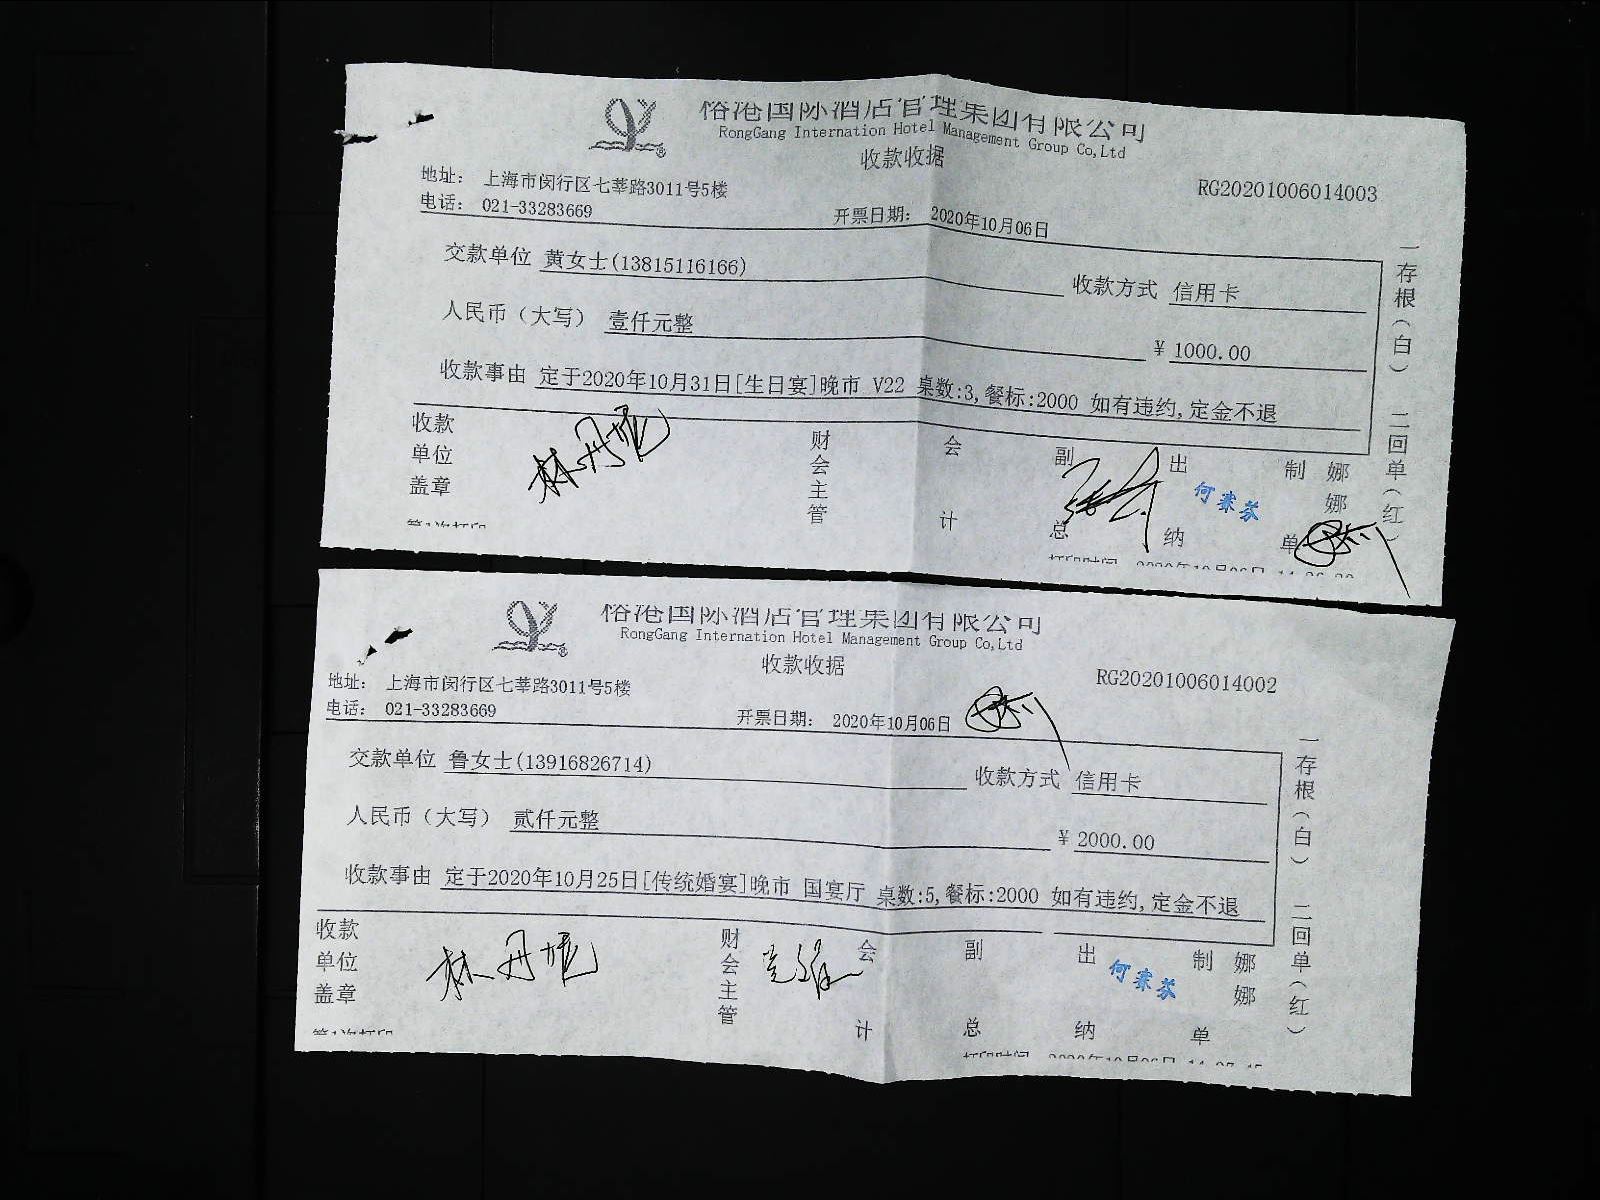 裕港国际酒店管理集团有限公司
RongGang Internation Hotel Management Group Co,Ltd
收款收据
地址： 上海市闵行区七莘路3011号5楼
RG20201006014003
电话： 021-33283669
开票日期： 2020年10月06日
交款单位 黄女士(13815116166)
收款方式 信用卡
人民币（大写） 壹仟元整
¥ 1000.00
收款事由 定于2020年10月31日[生日宴]晚市 V22 桌数:3,餐标:2000 如有违约,定金不退
收款单位盖章
林丹妮
财会主管
会计
副总
出纳
何赛芬
制单
娜娜
一存根（白） 二回单（红）
第1次打印
打印时间 2020年10月06日
裕港国际酒店管理集团有限公司
RongGang Internation Hotel Management Group Co,Ltd
收款收据
地址： 上海市闵行区七莘路3011号5楼
RG20201006014002
电话： 021-33283669
开票日期： 2020年10月06日
交款单位 鲁女士(13916826714)
收款方式 信用卡
人民币（大写） 贰仟元整
¥ 2000.00
收款事由 定于2020年10月25日[传统婚宴]晚市 国宴厅 桌数:5,餐标:2000 如有违约,定金不退
收款单位盖章
林丹妮
财会主管
会计
副总
出纳
何赛芬
制单
娜娜
一存根（白） 二回单（红）
第1次打印
打印时间 2020年10月06日